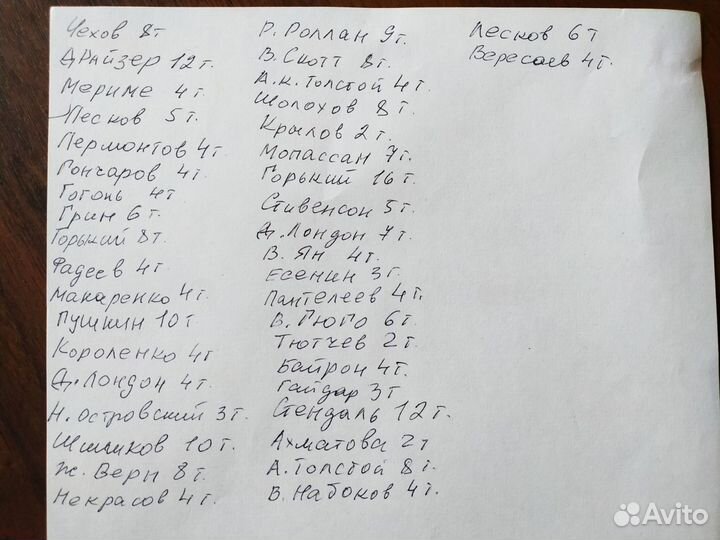 Чехов 8т
Драйзер 12т.
Мериме 4т.
Лесков 5т.
Лермонтов 4т.
Гончаров 4т.
Гоголь 4т.
Грин 6т.
Горький 8т.
Фадеев 4т.
Макаренко 4т.
Пушкин 10т.
Короленко 4т
Д. Лондон 4т.
Н. Островский 3т.
Шишков 10т.
Ж. Верн 8т.
Некрасов 4т.
Р. Роллан 9т.
В. Скотт 8т.
А.К. Толстой 4т.
Шолохов 8т.
Крылов 2т.
Мопассан 7т.
Горький 16т.
Стивенсон 5т.
Д. Лондон 7т.
В. Ян 4т.
Есенин 3т.
Пантелеев 4т.
В. Гюго 6т.
Тютчев 2т.
Байрон 4т.
Гайдар 3т
Стендаль 12т.
Ахматова 2т
А. Толстой 8т.
В. Набоков 4т.
Лесков 6т
Вересаев 4т.
Avito